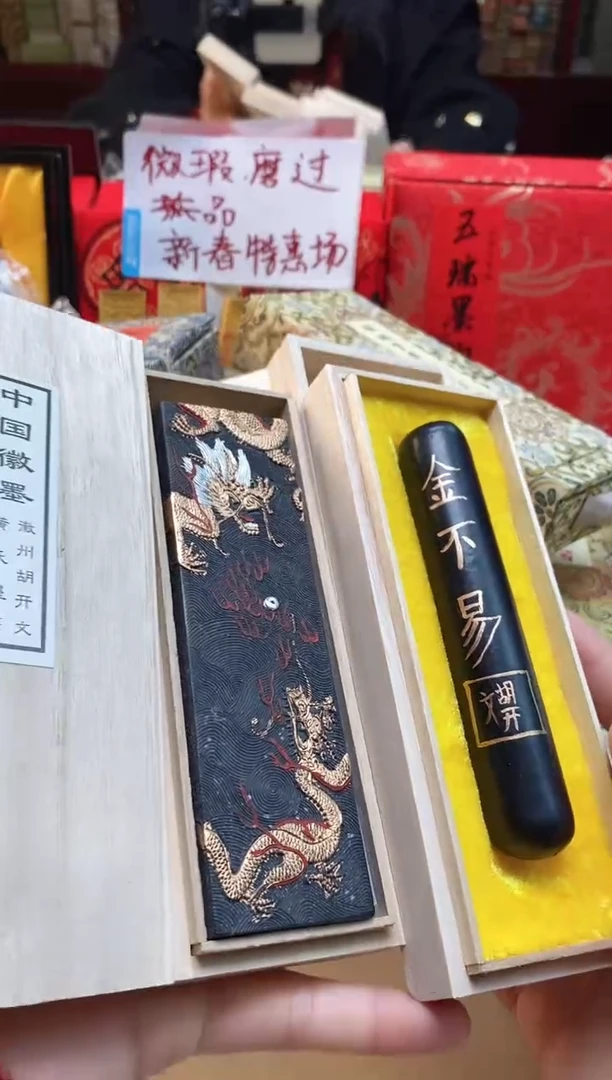 微瑕.磨过
品
新春特惠场
五
墨
中国徽墨
徽州胡开文
金不易
胡开文